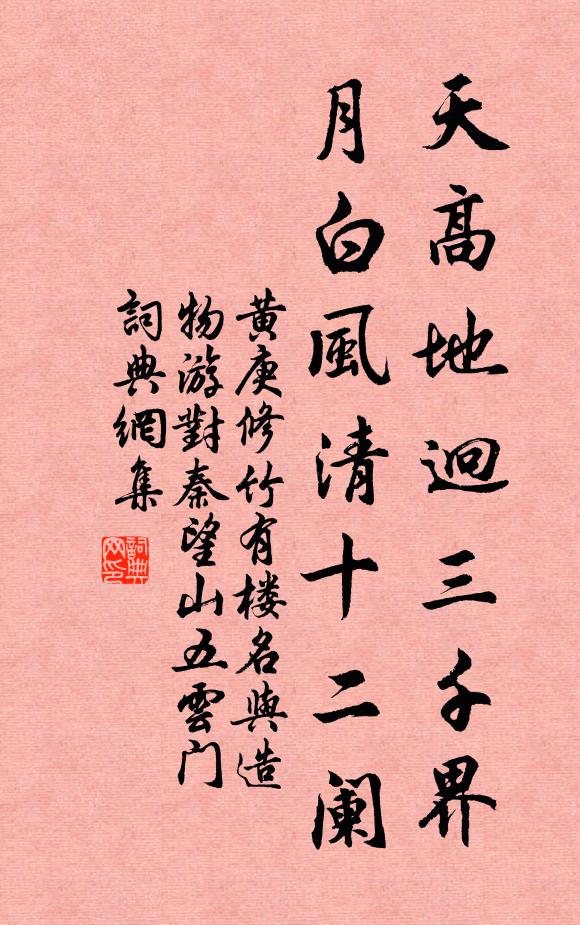 天高地迥三千界
月白風清十二阑
黄庚修竹有楼名與造
物游對秦望山五雲门
詞典網集
詞典网印